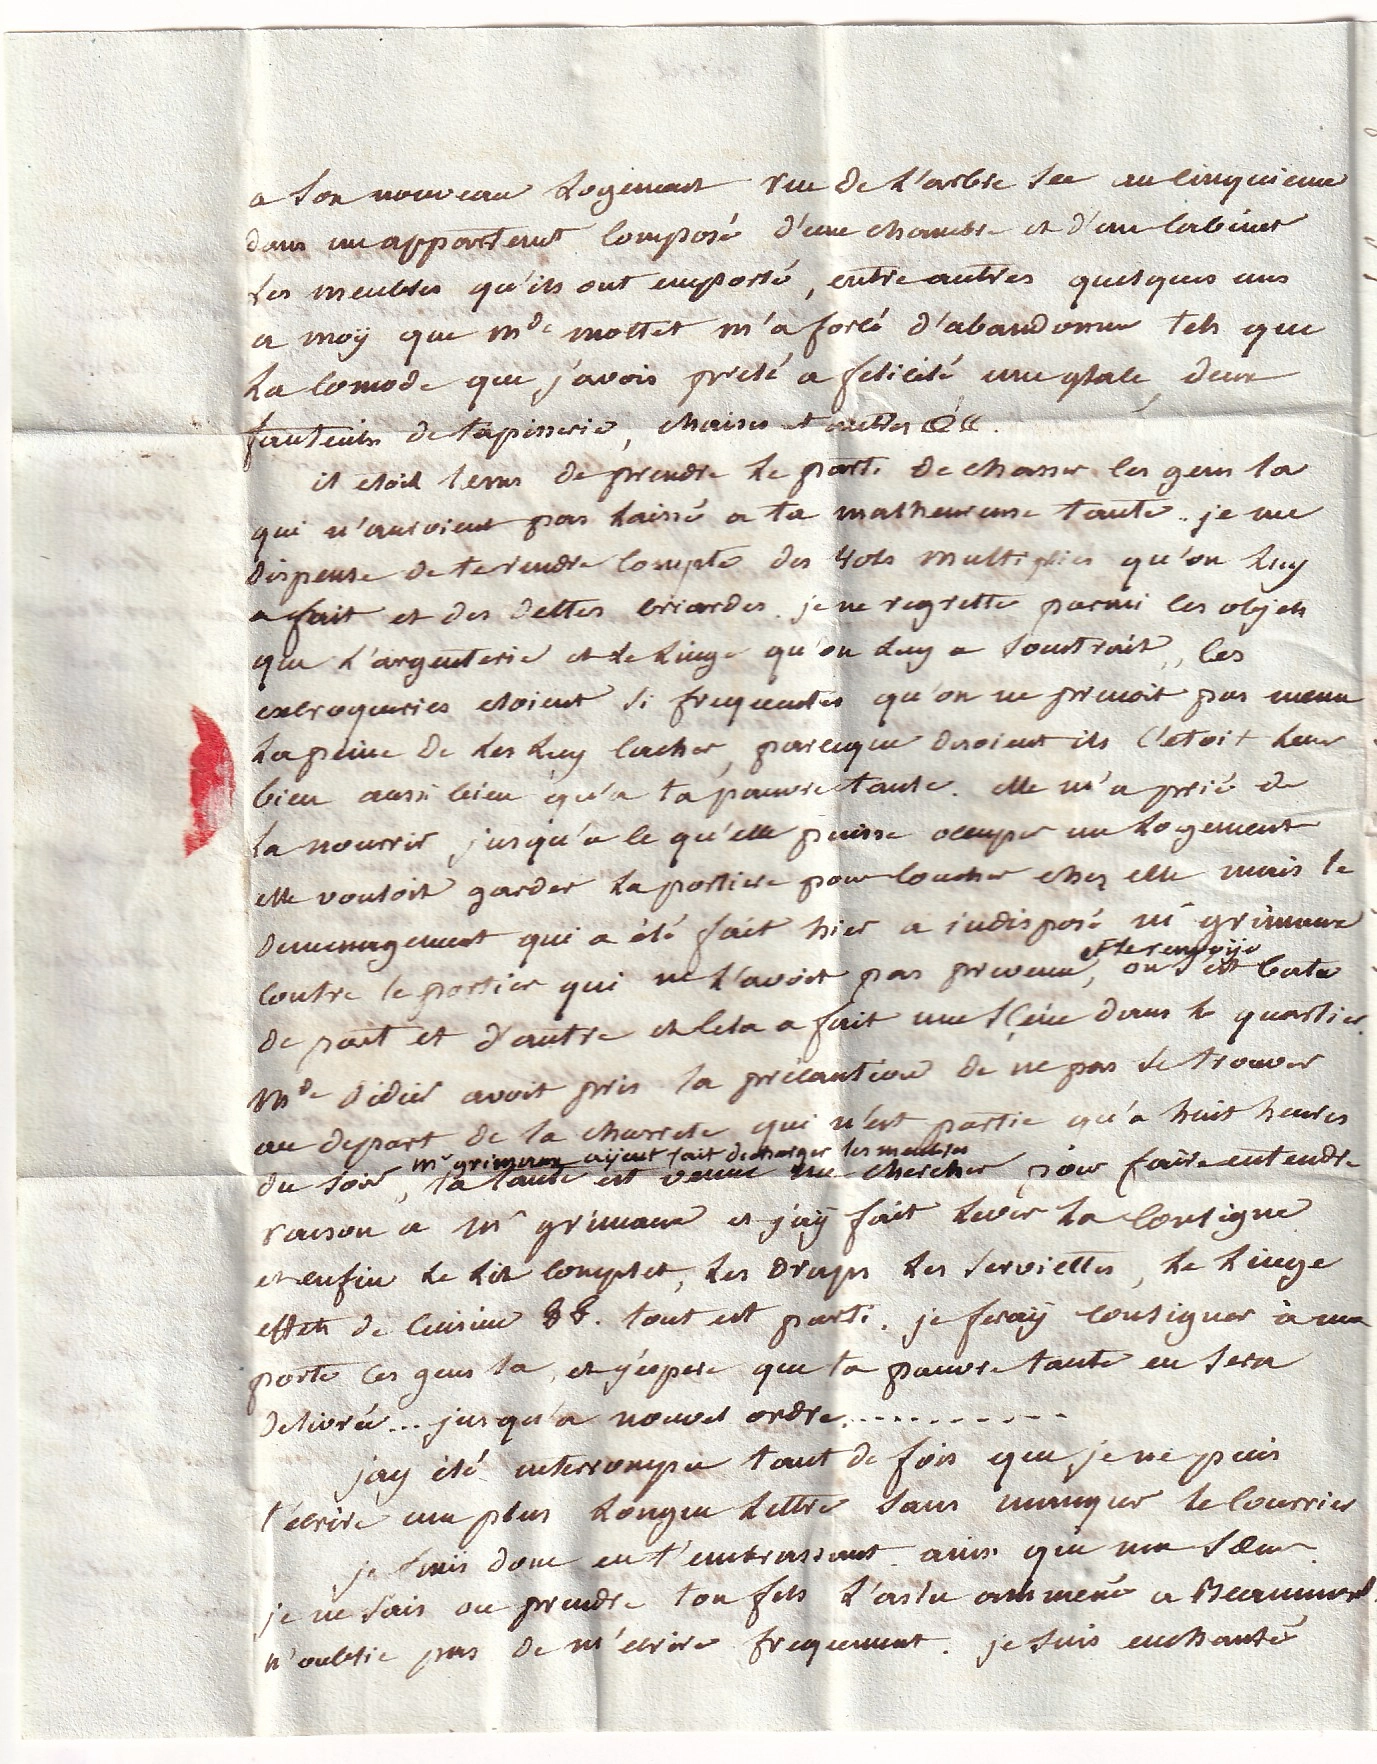 a son nouveau Logement rue de L'arbre sec au cinquieme
dans un appartemt composé d'une chambre et d'un cabinet
Les meubles qu'ils ont emporté, entre autres quelques uns
a moÿ que mde mottet m'a forcé d'abandonner tels que
La comode que j'avois preté a felicité une glace, deux
fauteuils de tapisserie, chaises et autres &&.
il etoit tems de prendre Le parti de chasser ces gens la
qui n'auroient pas Laissé a ta malheureuse tante.. je me
dispense de te rendre compte des vols multipliés qu'on Luy
a fait et des dettes criardes. je ne regrette parmi ces objets
que L'argenterie et Le Linge qu'on Luy a soustrait,, ces
escroqueries etoient si frequentes qu'on ne prenoit pas meme
La peine de Les Luy cacher, parceque disoient ils c'etoit Leur
bien aussi bien qu'a ta pauvre tante. elle m'a prié de
La nourrir jusqu'a ce qu'elle puisse occuper un Logement
elle vouloit garder La portiere pour coucher chez elle mais le
demenagement qui a été fait hier a indisposé mr grimaux
contre le portier qui ne l'avoit pas prevenu, et le renvoÿe on s'est battu
de part et d'autre et cela a fait une sçéne dans le quartier.
mde didier avoit pris la précaution de ne pas se trouver
au depart de la charrete qui n'est partie qu'a huit heures
du soir, mr grimaux aÿant fait decharger les meubles
ta tante est venue me chercher pour faire entendre
raison a mr grimaux et j'aÿ fait Lever La consigne
et enfin Le Lit complet, Les draps Les serviettes, Le Linge
effets de cuisine &&. tout est parti. je feraÿ consigner à ma
porte ces gens la, et j'espere que ta pauvre tante en sera
delivrée... jusqu'a nouvel ordre...........
jay été interrompu tant de fois que je ne puis
t'écrire une plus Longue Lettre sans manquer le courrier
je finis donc en t'embrassant ainsi que ma sœur.
je ne sais ou prendre ton fils L'as tu ammené a Beaumont.
n'oublie pas de m'écrire frequement. je suis enchanté